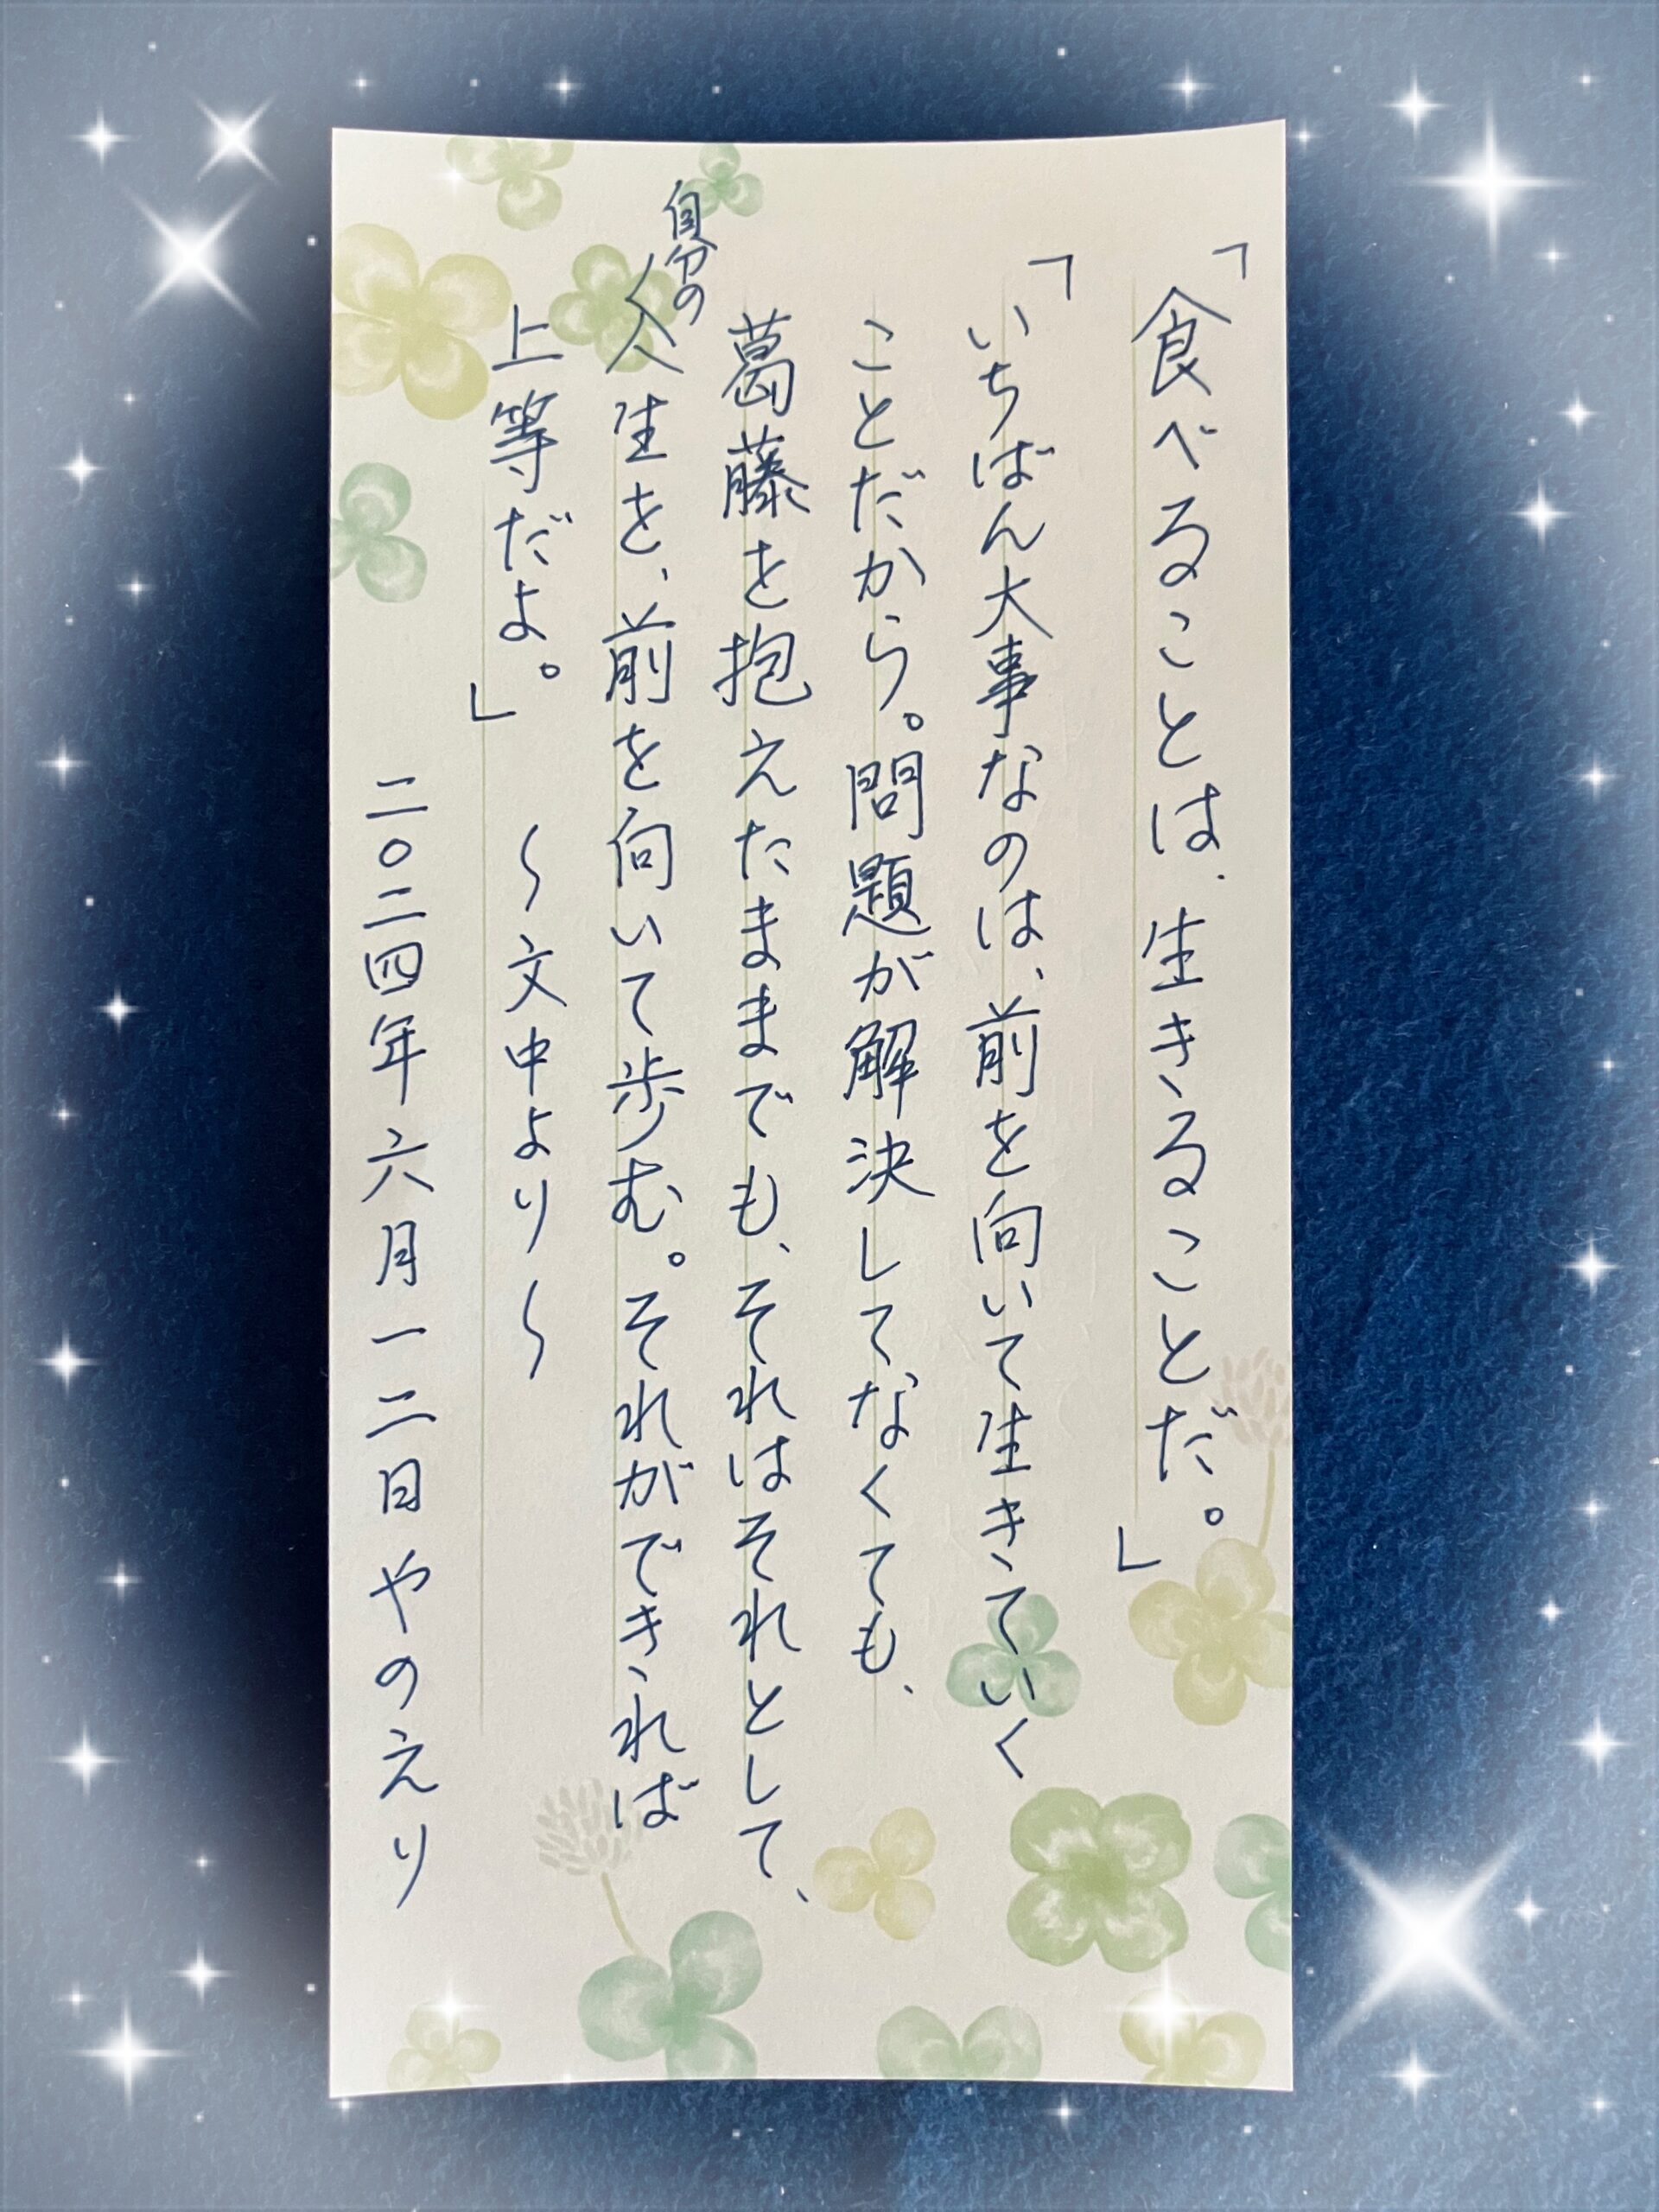 「食べることは、生きることだ。」
「いちばん大事なのは、前を向いて生きていく
ことだから。問題が解決してなくても、
葛藤を抱えたままでも、それはそれとして、
自分の
人生を、前を向いて歩む。それができれば
上等だよ。」　〜文中より〜
二〇二四年六月一二日やのえり